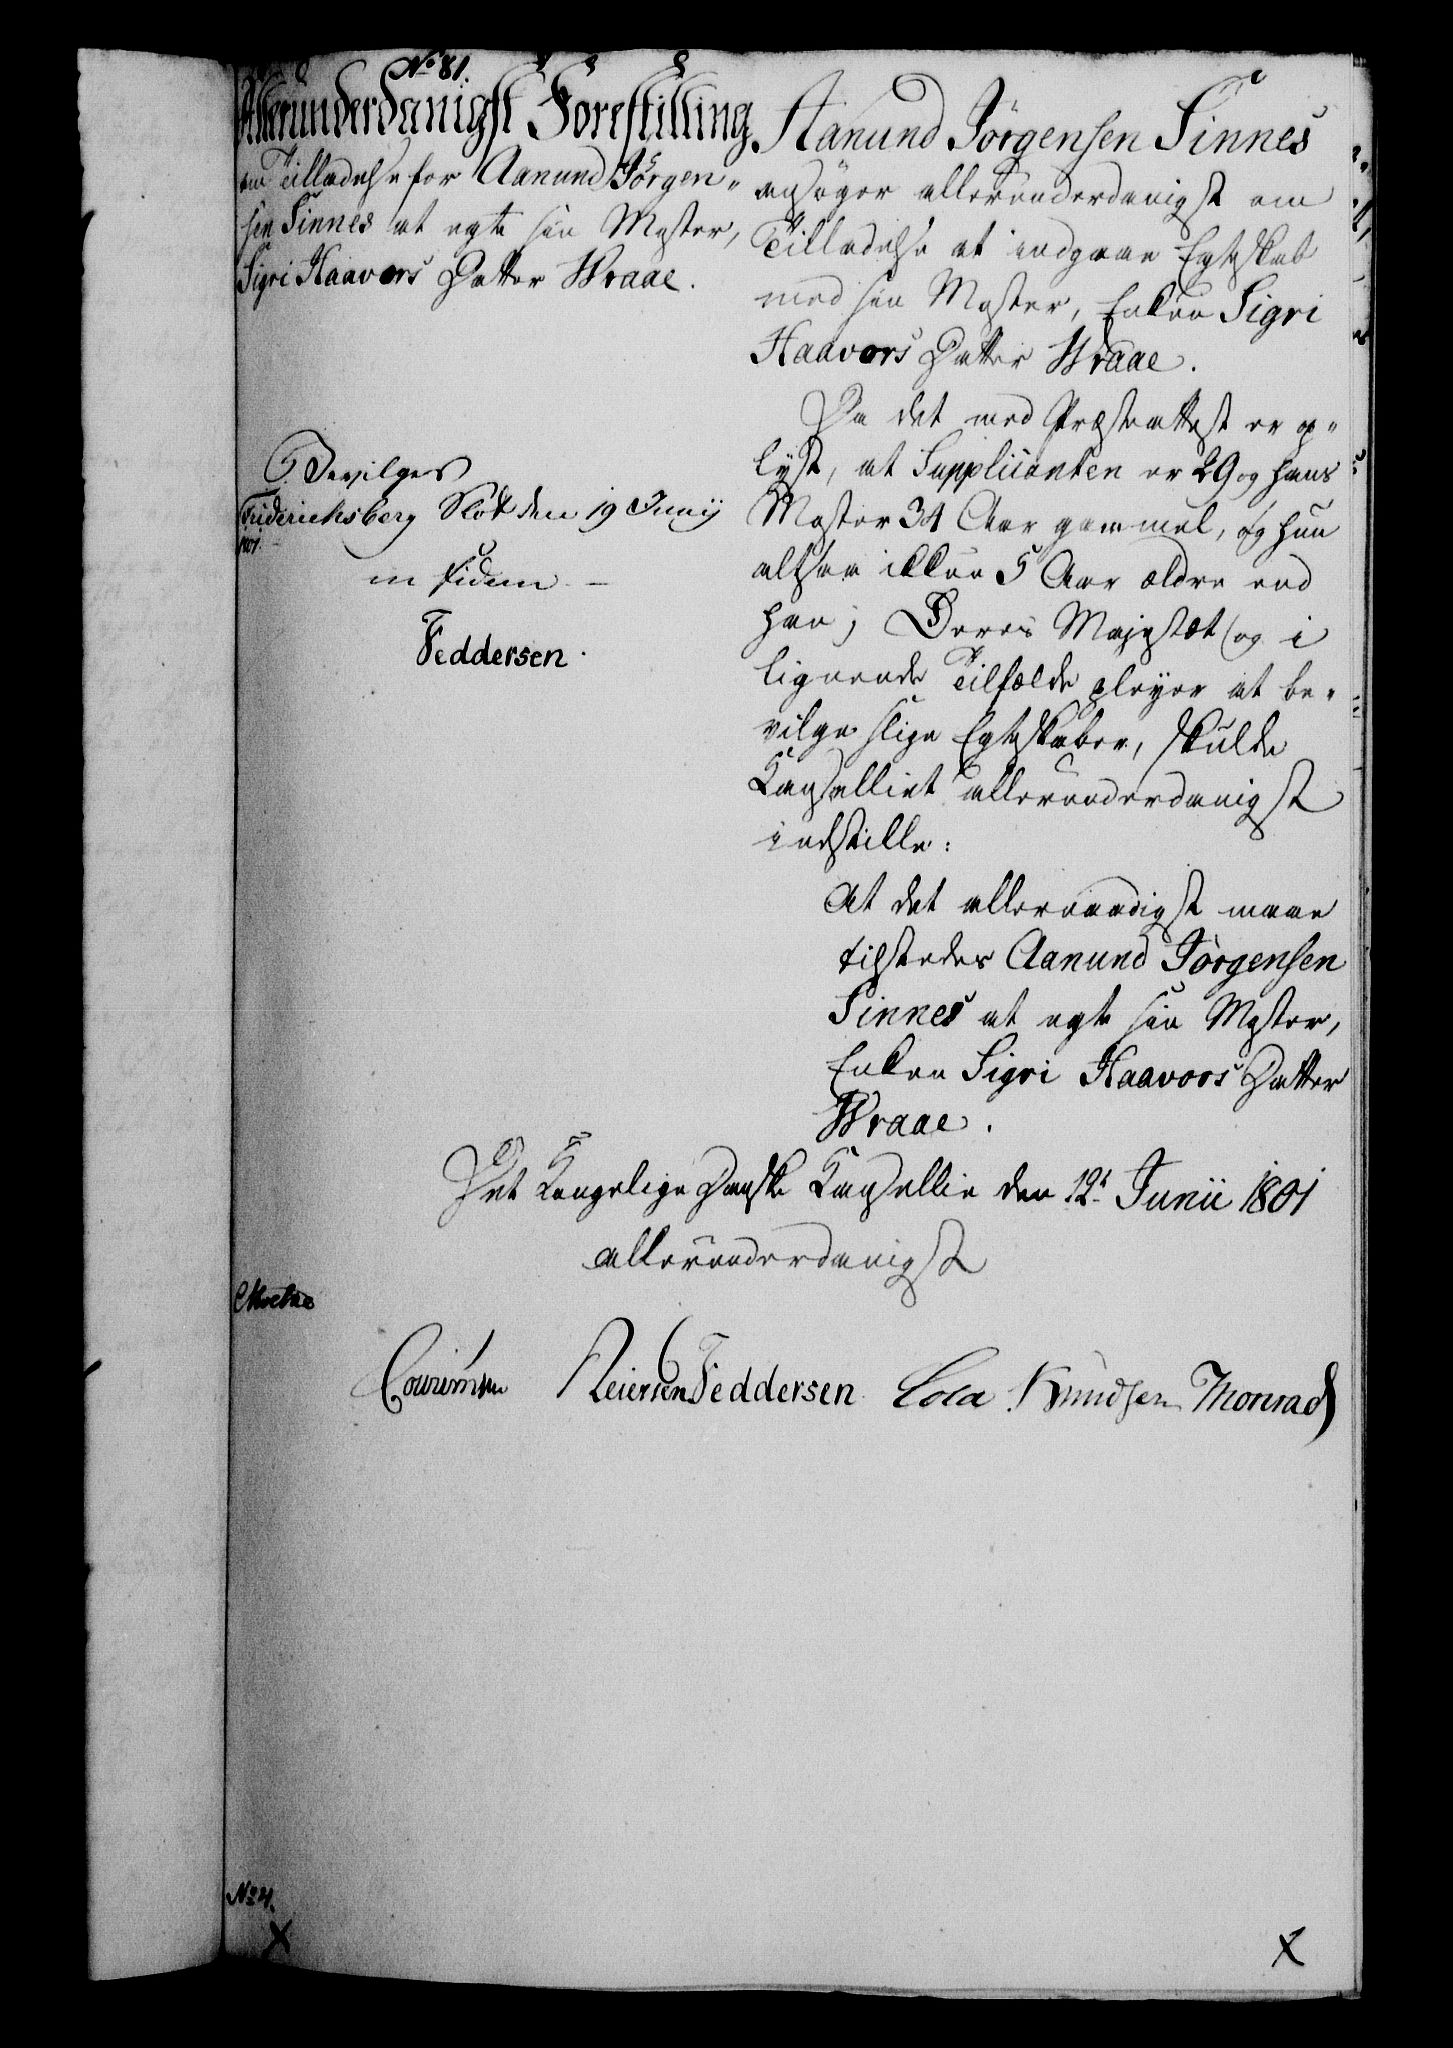 No 81.
Allerunderdanigst Forestilling
om Tilladelse for Aanund Jörgen„
sen Sinnes at egte sin Moster,
Sigri Haavors Datter Wraae.
Bevilges
Friderichsberg Slot den 19 Junij
1801.
in fidem
Feddersen.
Aanund Jörgensen Sinnes
ansöger allerunderdanigst om
Tilladelse at indgaae Egteskab
med sin Moster, Enken Sigri
Haavors Datter Wraae.
Da det med Præsteattest er op„
lyst, at Supplicanten er 29 og hans
Moster 34 Aar gammel, og hun
altsaa ikkun 5 Aar ældre end
han; Deres Majestæt og i
lignende Tilfælde pleyer at be„
vilge slige Egteskaber, skulde
Kanselliet allerunderdanigst
indstille:
At det allernaadigst maae
tilstedes Aanund Jörgensen
Sinnes at egte sin Moster,
Enken Sigri Haavors Datter
Wraae.
Det Kongelige Danske Kansellie den 12t Junii 1801
allerunderdanigst
Reiersen Feddersen Cold Knudsen Monrad
No 21.
X X